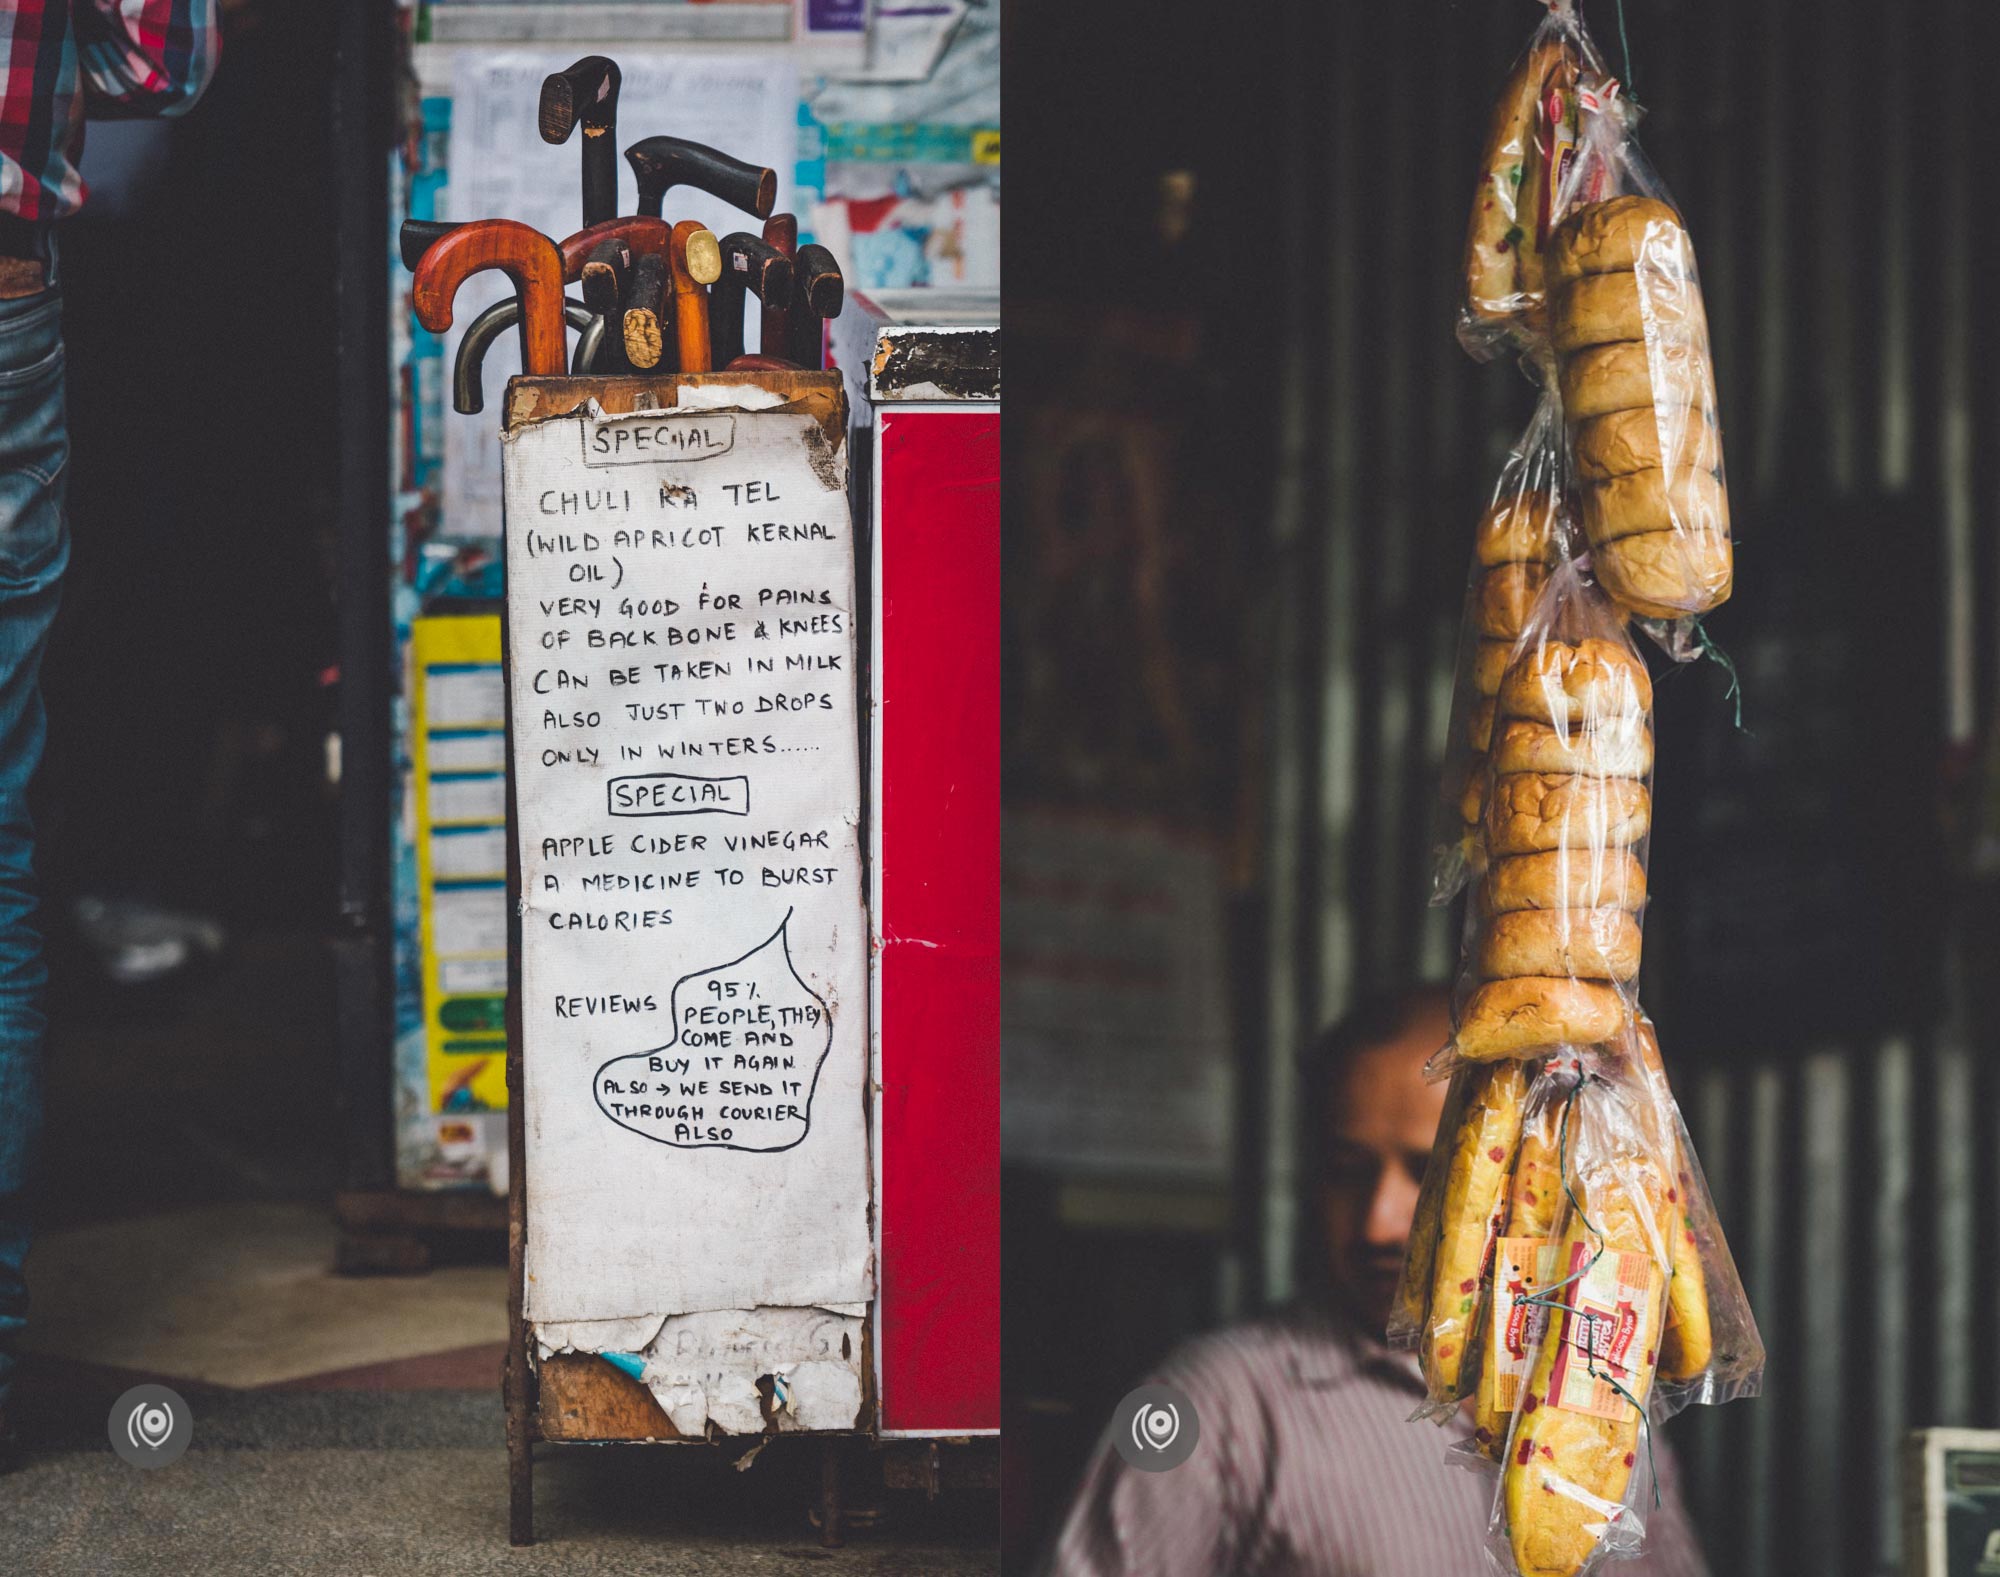 SPECIAL
CHULI KA TEL
(WILD APRICOT KERNAL
OIL)
VERY GOOD FOR PAINS
OF BACK BONE & KNEES
CAN BE TAKEN IN MILK
ALSO JUST TWO DROPS
ONLY IN WINTERS......
SPECIAL
APPLE CIDER VINEGAR
A MEDICINE TO BURST
CALORIES
REVIEWS
95%
PEOPLE, THEY
COME AND
BUY IT AGAIN
ALSO → WE SEND IT
THROUGH COURIER
ALSO